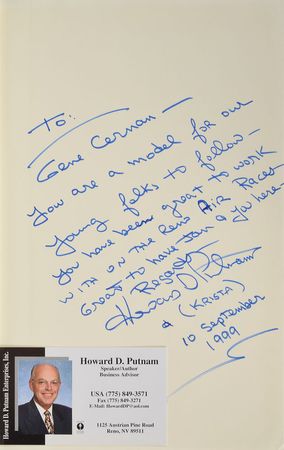 To:
Gene Cernan —
You are a model for our
young folks to follow —
You have been great to work
with on the Reno Air Races
Great to have Jan & you here —
Regards
Howard D Putnam
& (Krista)
10 September
1999
Howard D. Putnam Enterprises, Inc.
Howard D. Putnam
Speaker/Author
Business Advisor
USA (775) 849-3571
Fax (775) 849-3271
E-Mail: HowardDP@aol.com
1125 Austrian Pine Road
Reno, NV 89511